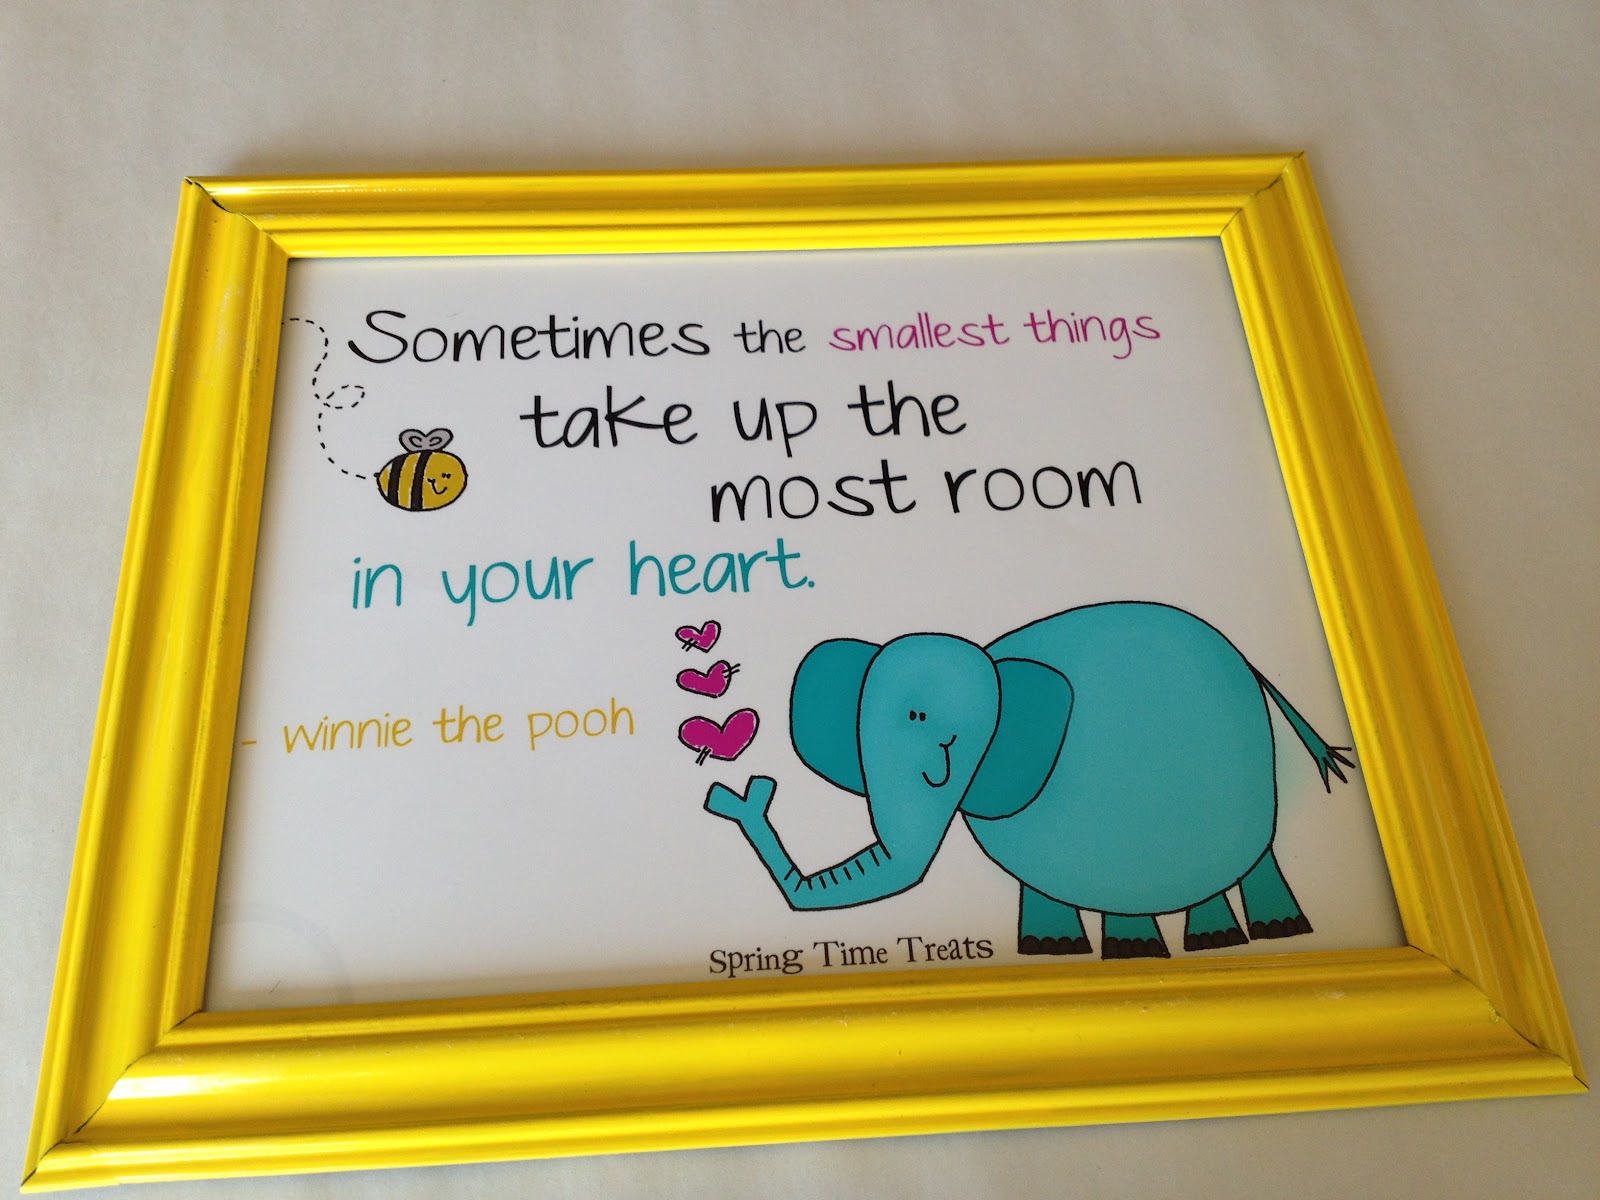 Sometimes the smallest things
take up the
most room
in your heart.
- winnie the pooh
Spring Time Treats